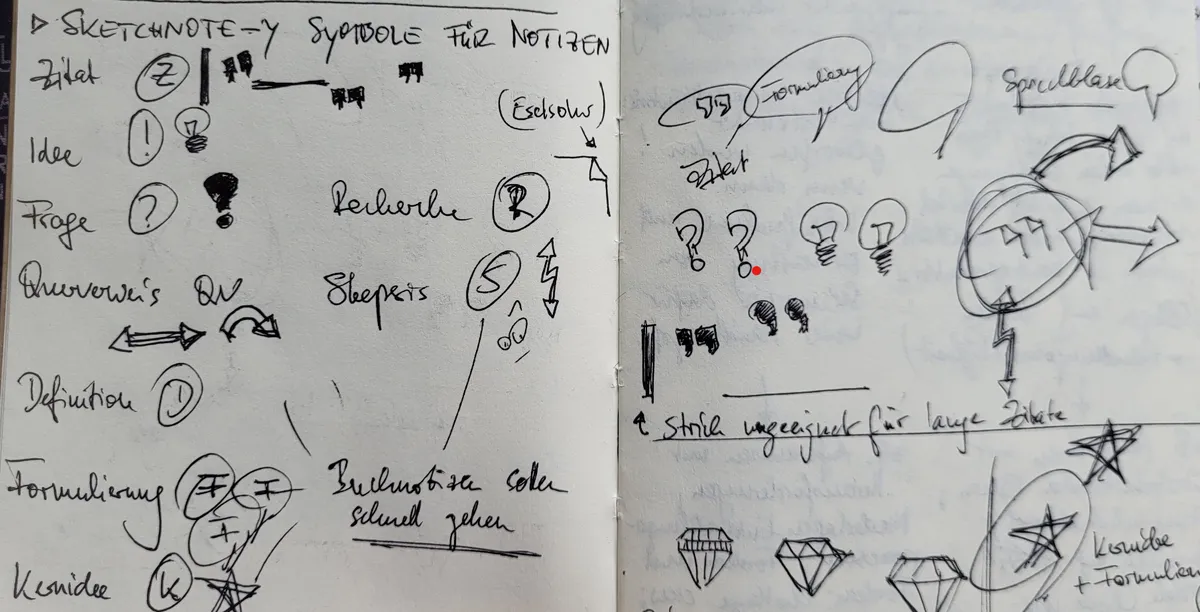 ▷ SKETCHNOTE-Y SYMBOLE FÜR NOTIZEN
Zitat Z
Idee !
Frage ?
Querverweis QV
Definition D
Formulierung F F
F
Kernidee K
(Eselsohr)
Recherche R
Skepsis S
Buchnotizen sollen
schnell gehen
Formulierung
Zitat
Sprechblase
? ?
Strich ungeeignet für lange Zitate
Kernidee
+ Formulierung